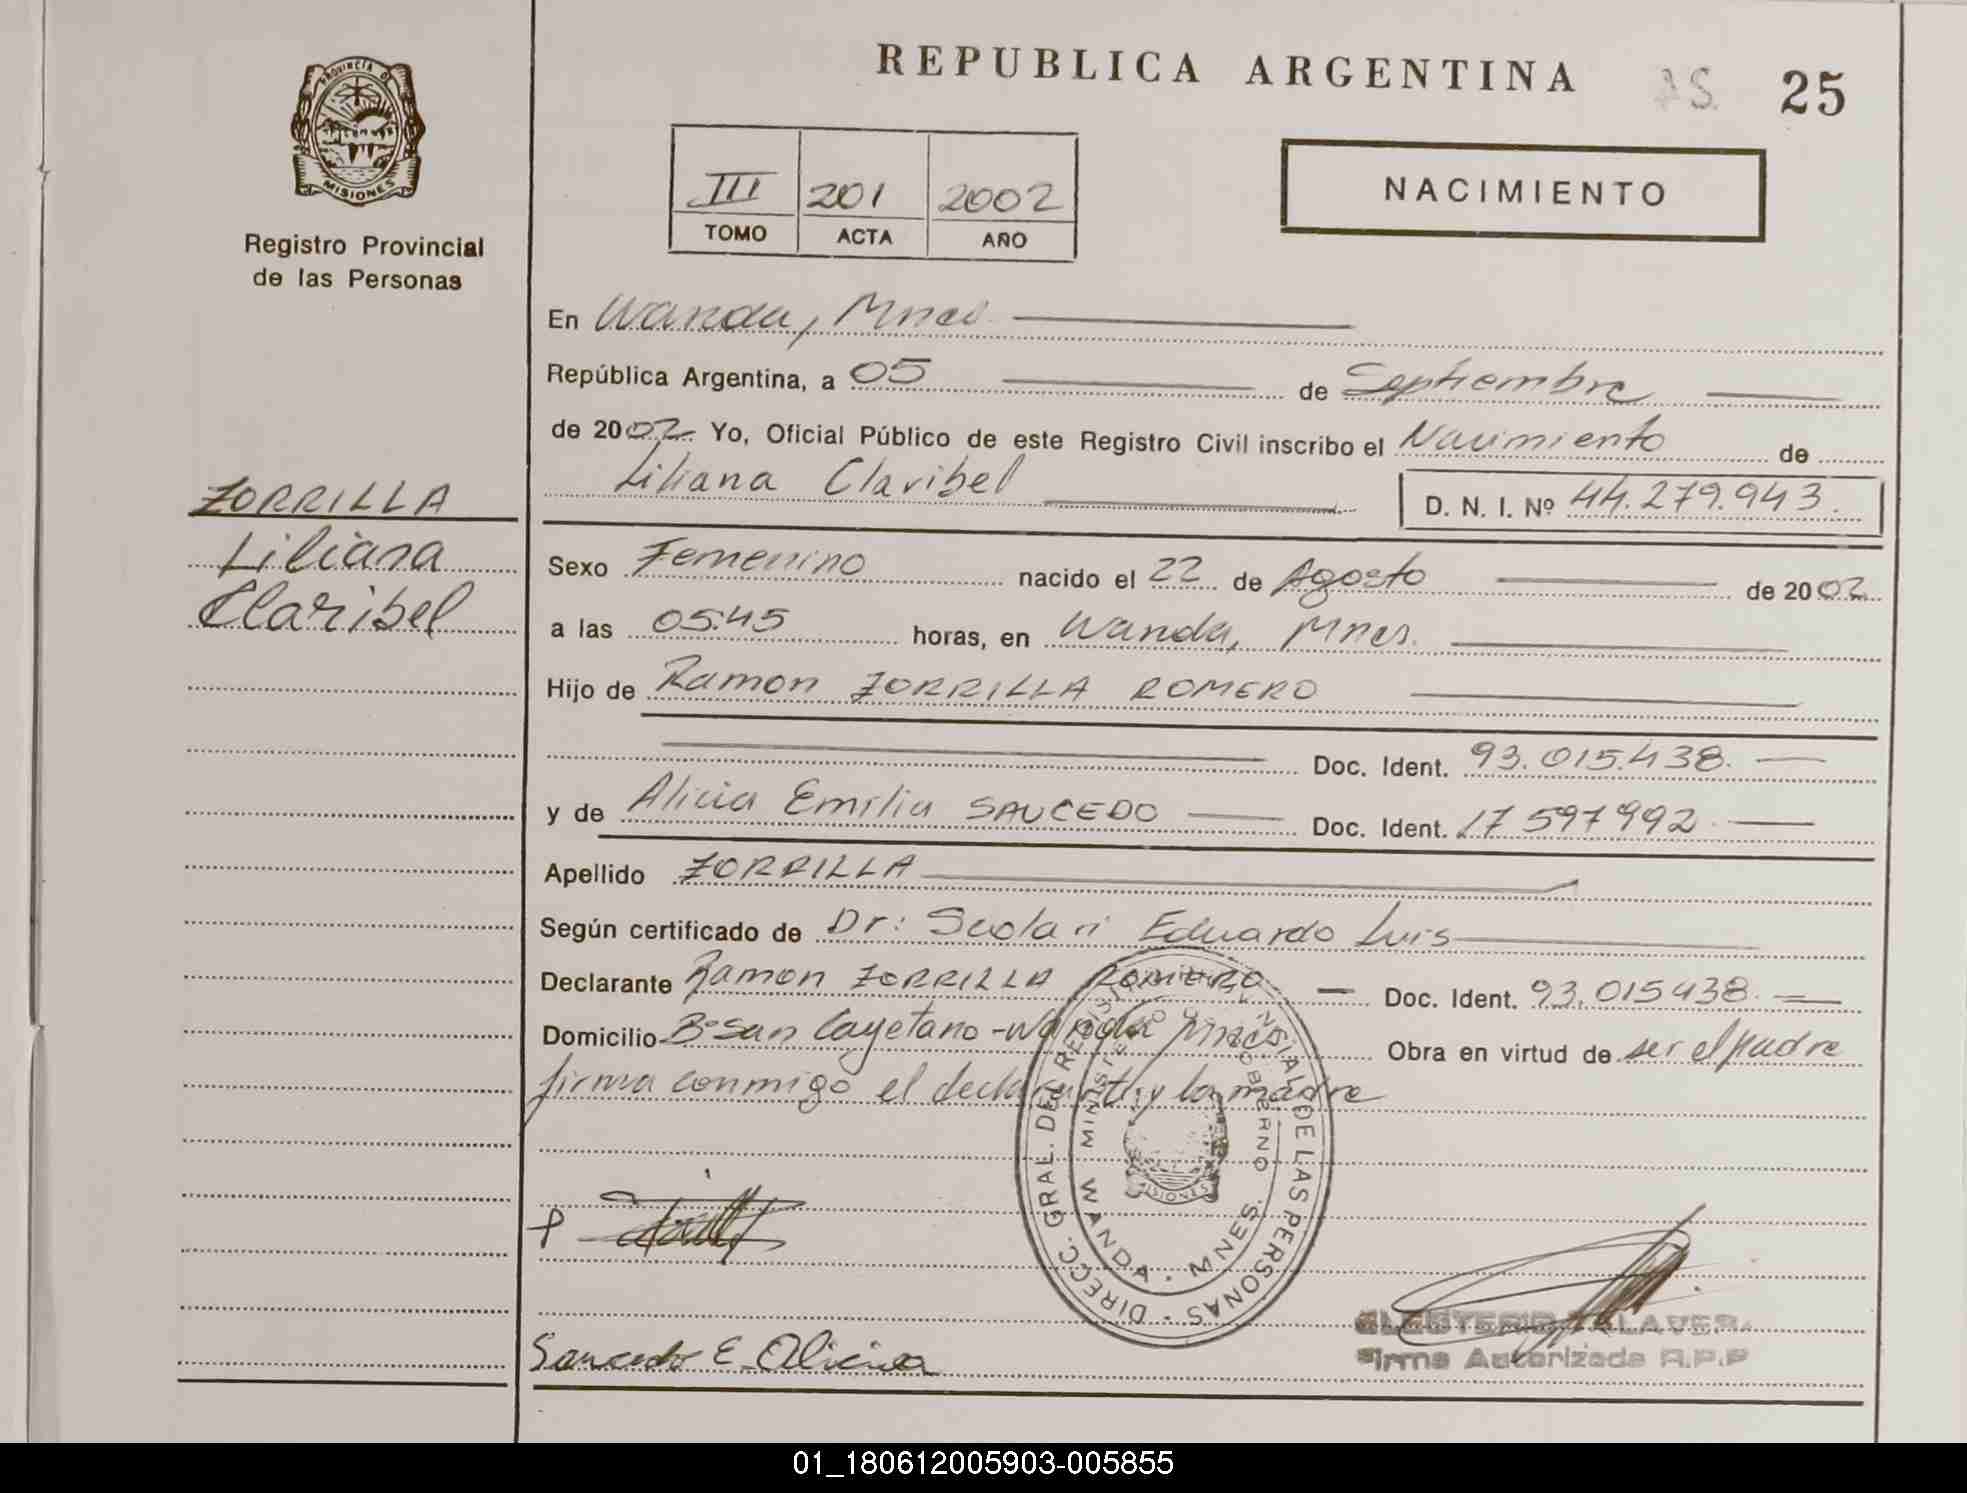 PROVINCIA DE
MISIONES
Registro Provincial
de las Personas
ZORRILLA
Liliana
Claribel
REPUBLICA ARGENTINA
25
III 201 2002
TOMO ACTA AÑO
NACIMIENTO
En Wanda, Mnes
República Argentina, a 05 de Septiembre
de 2002 Yo, Oficial Público de este Registro Civil inscribo el Nacimiento de
Liliana Claribel D. N. I. Nº 44.279.943.
Sexo Femenino nacido el 22 de Agosto de 2002
a las 05:45 horas, en Wanda, Mnes.
Hijo de Ramon ZORRILLA ROMERO
Doc. Ident. 93.015.438.
y de Alicia Emilia SAUCEDO Doc. Ident. 17597992
Apellido ZORRILLA
Según certificado de Dr: Scolari Eduardo Luis
Declarante Ramon ZORRILLA ROMERO Doc. Ident. 93.015438.
Domicilio Bº San Cayetano - Wanda Mnes Obra en virtud de ser el padre
firma conmigo el declarante y la madre
DIRECC. GRAL. DEL REGIST. PROVINCIAL DE LAS PERSONAS
MINISTERIO DE GOBIERNO
MISIONES
WANDA - MNES.
P
Saucedo E Alicia
ELEUTERIO TALAVERA
Firma Autorizada R.P.P
01_180612005903-005855